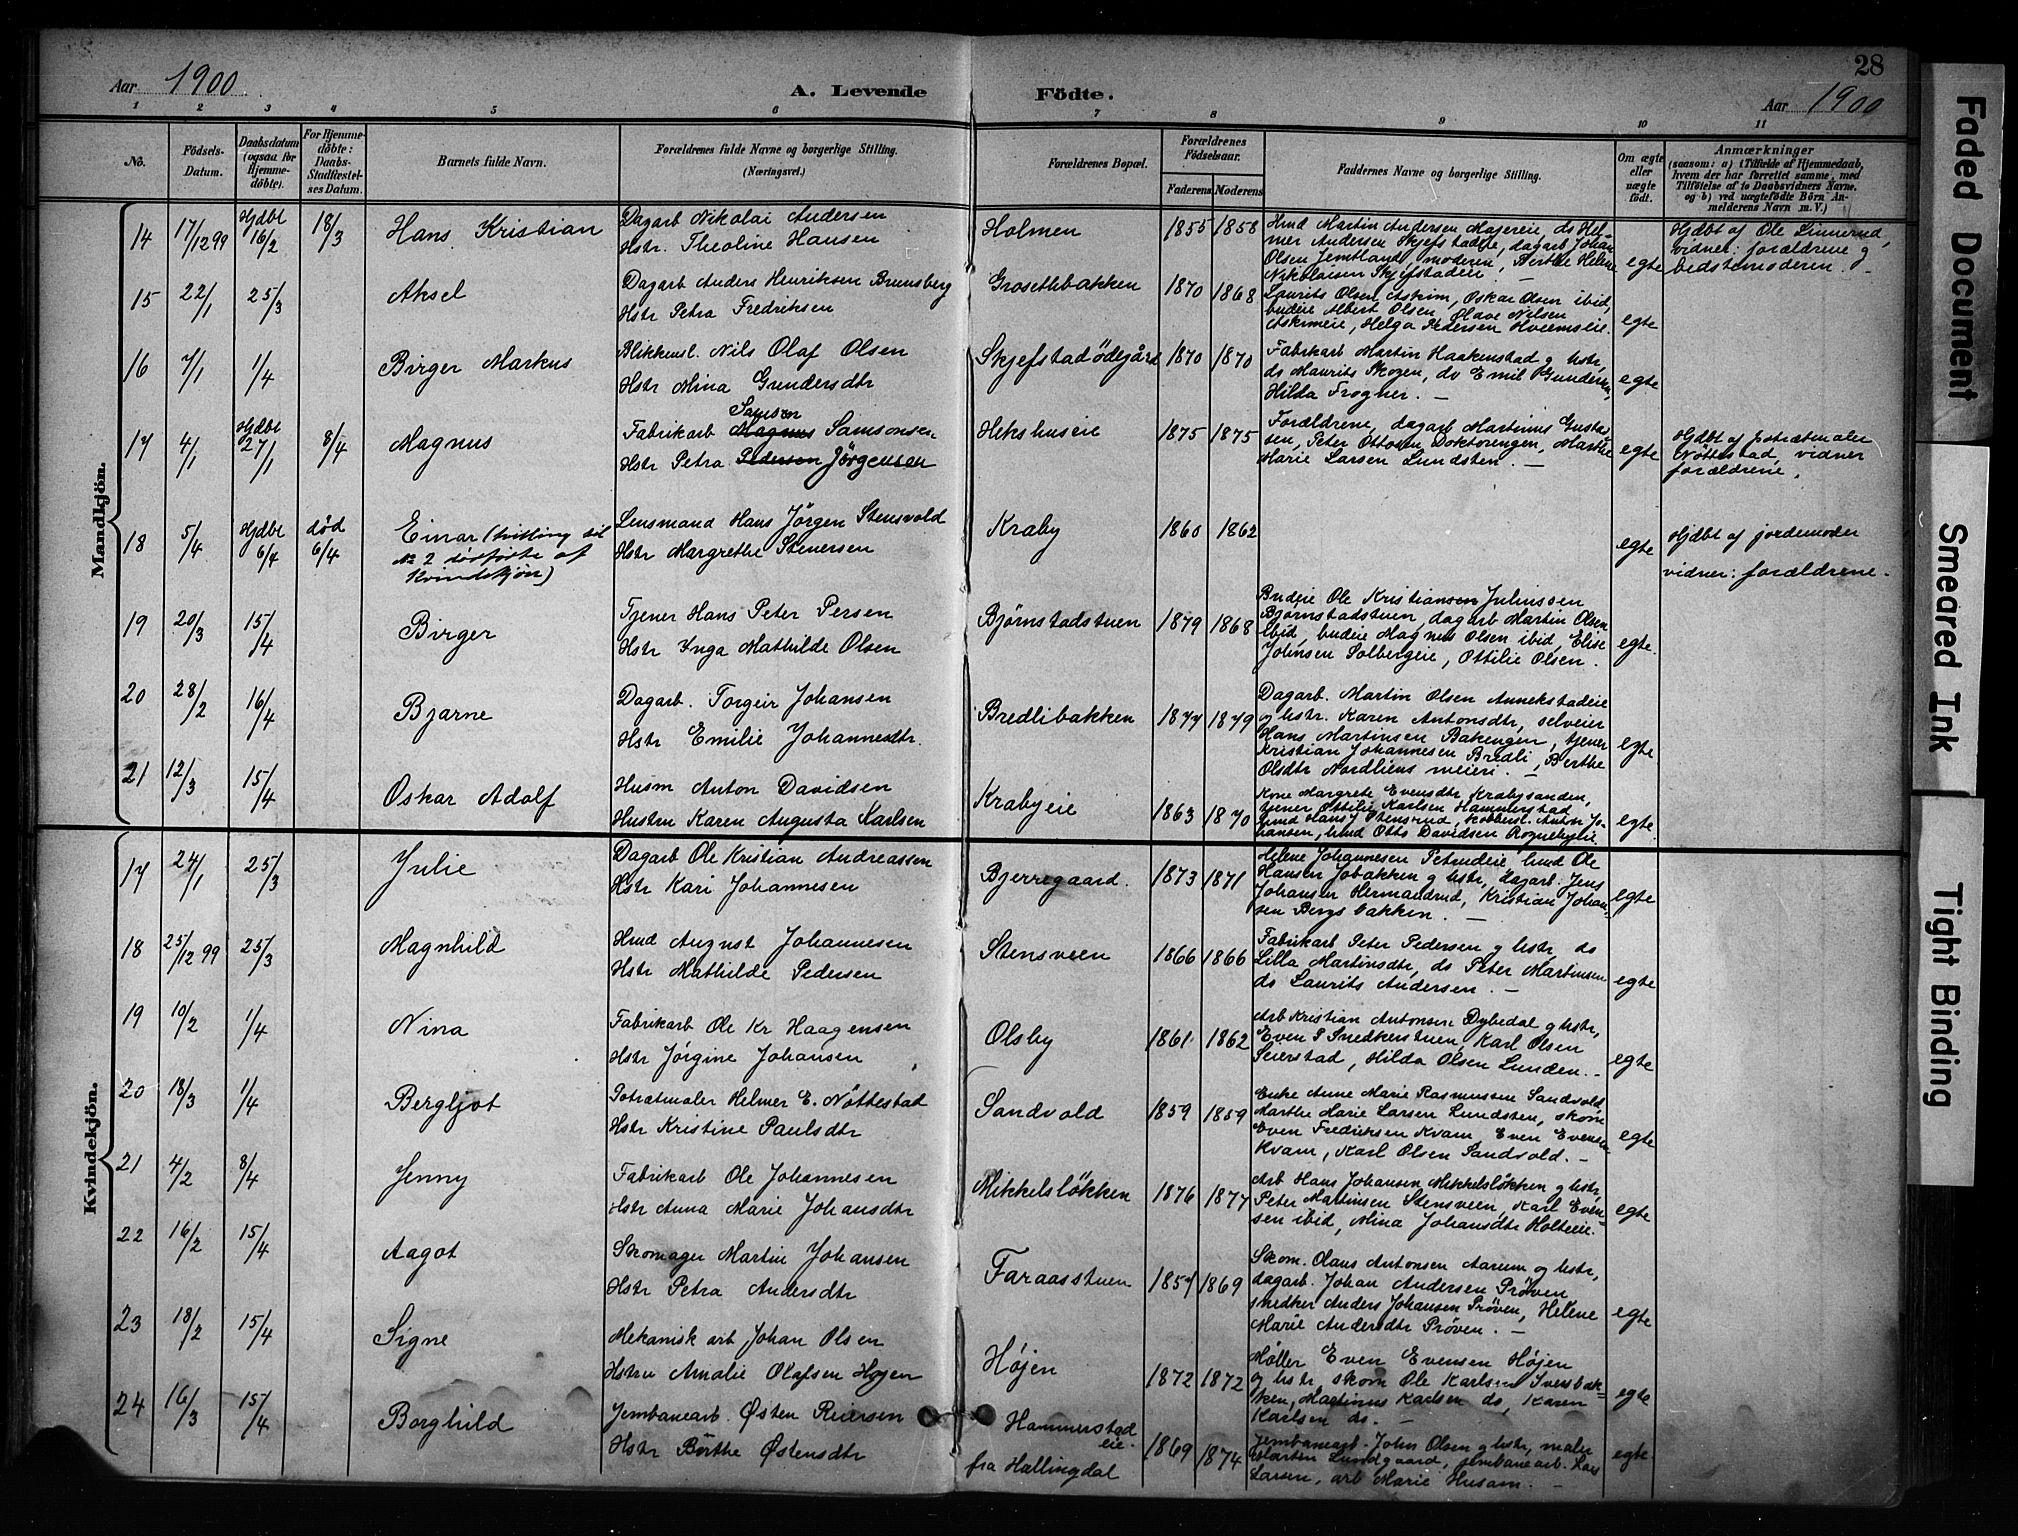 28
Aar 1900 A. Levende Födte. Aar 1900
1 2 3 4 5 6 7 8 9 10 11
No. Födsels-Datum. Daabsdatum (ogsaa for Hjemmedöbte). For Hjemmedöbte: Daabs-Stadfæstelses Datum. Barnets fulde Navn. Forældrenes fulde Navne og borgerlige Stilling. (Næringsvei.) Forældrenes Bopæl. Forældrenes Födselsaar. Faderens Moderens Faddernes Navne og borgerlige Stilling. Om ægte eller uægte födt. Anmærkninger (saasom: a) i Tilfælde af Hjemmedaab, hvem der har forrettet samme, med Tilföielse af to Daabsvidners Navne, og b) ved uægtefödte Börn Anmelderens Navn m. V.)
Mandkjön.
14 17/12 99 Hjdbt 16/2 18/3 Hans Kristian Dagarb Nikolai Andersen
Hstr. Theoline Hansen Holmen 1855 1858 Hmd Martin Andersen Majereie, ds Hel-
mer Andersen Skjefstadeie, dagarb Johan
Olsen Jemtland, moderen, Berthe Helene
Nikolaisen Skjefstadeie egte Hjdbt af Ole Linnerud,
vidner: forældrene og
bedstemoderen. -
15 22/1 25/3 Aksel Dagarb Anders Henriksen Brunsberg
Hstr Petra Fredriksen Grosethbakken 1870 1868 Laurits Olsen Askim, Oskar Olsen ibid,
budeie Albert Olsen, Olave Nilsen
Askimeie, Helga Pedersen Hveemseie. egte
16 7/1 1/4 Birger Markus Blikkensl. Nils Olaf Olsen
Hstr Mina Gundersdtr Skjefstadödegård 1870 1870 Fabrikarb Martin Haakenstad g hstr,
ds Maurits Skogen, do Emil Gundersen,
Hilda Frogner. - egte
17 4/1 Hjdbt 27/1 8/4 Magnus Samson
Fabrikarb Magnus Samsonsen
Hstr Petra Pedersen Jörgensen Hekshuseie 1875 1875 Forældrene, dagarb Martinius Gusta
sen, Peter Ottosen Doktorengen, Marthe
Marie Larsen Lundsten. - egte Hjdbt af potrætmaler
Nöttestad, vidner
forældrene.
18 5/4 Hjdbt 6/4 död 6/4 Einar (tvilling til
No 2 dødfødte af
Kvindekjøn) Lensmand Hans Jörgen Stensvold
Hstr Margrethe Stenersen Kraby 1860 1862 egte Hjdbt af jordemoder
vidner: forældrene.
19 20/3 15/4 Birger Tjener Hans Peter Persen
Hstr Inga Mathilde Olsen Bjørnstadstuen 1879 1868 Budeie Ole Kristiansen Juliussen
Bjørnstadstuen, dagarb Martin Olsen
ibid, budeie Magnus Olsen ibid, Elise
Johnsen Solbergeie, Ottilie Olsen. egte.
20 28/2 16/4 Bjarne Dagarb. Torgeir Johansen
Hstr Emilie Johannesdtr. Bredlibakken 1877 1879 Dagarb. Martin Olsen Annekstadeie
g hstr. Karen Antonsdtr, selveier
Hans Martinsen Bakengen, tjener
Kristian Johannesen Bredli, Berthe
Olsdtr Nordliens meieri. egte
21 12/3 15/4 Oskar Adolf Husm Anton Davidsen
Hustru Karen Augusta Karlsen Krabyeie 1863 1870 Kone Margrete Evensdtr Krabysanden,
tjener Ottilie Karlsen Hammerstad
hmd Hans J Stensrud, Kobbersl. Anton Jo-
hansen, hmd Otto Davidsen Rognebyeie. egte.
Kvindekjön.
17 24/1 25/3 Julie Dagarb Ole Kristian Andreassen
Hstr Kari Johannesen Bjerregaard. 1873 1871 Helene Johannesen Petrudeie, hmd Ole
Hansen Jobakken g hstr, dagarb. Jens
Johansen Hermandrud, Kristian Johan-
sen Bergsbakken. - egte
18 25/12 99 25/3 Magnhild Hmd August Johannesen
Hstr Mathilde Pedersen Stensveen 1866 1866 Fabrikarb Peter Pedersen g hstr, ds
Lilla Martinsdtr, ds Peter Martinsen
ds Laurits Andersen. - egte
19 10/2 1/4 Nina Fabrikarb Ole Kr Haagensen
Hstr Jörgine Johansen Olsby 1861 1862 Arb Kristian Antonsen Dybedal g hstr,
Even P Snedkerstuen, Karl Olsen
Seierstad, Hilda Olsen Lunden. - egte
20 18/3 1/4 Bergljot Potrætmaler Helmer E. Nöttestad
Hstr Kristine Paulsdtr Sandvold 1859 1859 Enke Anne Marie Rasmussen Sandvold
Marthe Marie Larsen Lundsten, skom
Even Fredriksen Kvam, Even Evensen
Kvam, Karl Olsen Sandvold. - egte
21 4/2 8/4 Jenny Fabrikarb Ole Johannesen
Hstr Anna Marie Johansdtr Mikkelsløkken 1876 1877 Arb Hans Johansen Mikkelsløkken g hstr,
Peter Martinsen Stensveen, Karl Even-
sen ibid, Mina Johansdtr Holteeie. egte
22 16/2 15/4 Aagot Skomager Martin Johansen
Hstr Petra Andersdtr Faraasstuen 1857 1869 Skom. Olaus Antonsen Aarum og hstr,
dagarb. Johan Andersen Pröven
snedker Anders Johansen Pröven, Helene
Marie Andersdtr Pröven. - egte
23 18/2 15/4 Signe Mekanisk arb Johan Olsen
Hstru Amalie Olafsen Højen Højen 1872 1872 Møller Even Evensen Højen
og hstr, skom Ole Karlsen Iversbak-
ken, Martinus Karlsen ds, Karen
Karlsen ds. - egte
24 16/3 15/4 Borghild Jernbanearb. Østen Reiersen
Hstr Börthe Østensdtr Hammerstad
eie.
fra Hallingdal 1869 1874 Jernbanearb. John Olsen g hstr, maler
Marten Lundgaard, jernbanearb. Lars
Larsen, arb Marie Husam. - egte.
Faded Document
Smeared Ink
Tight Binding